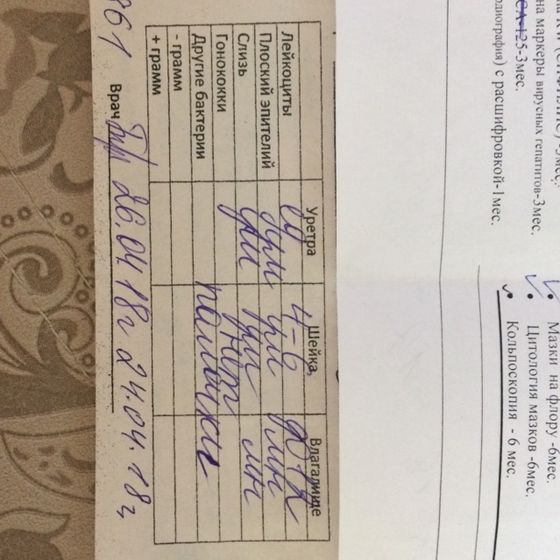 на маркеры вирусных гепатитов-3мес.
СА-125-3мес.
с расшифровкой-1мес.
Мазки на флору -6мес.
Цитология мазков -6мес.
Кольпоскопия - 6 мес.
Уретра Шейка, Влагалище
Лейкоциты 4-6
Плоский эпителий мн
Слизь мн
Гонококки нет
Другие бактерии палочки
- грамм
+ грамм
Врач 26.04 18г 24.04.18г
861